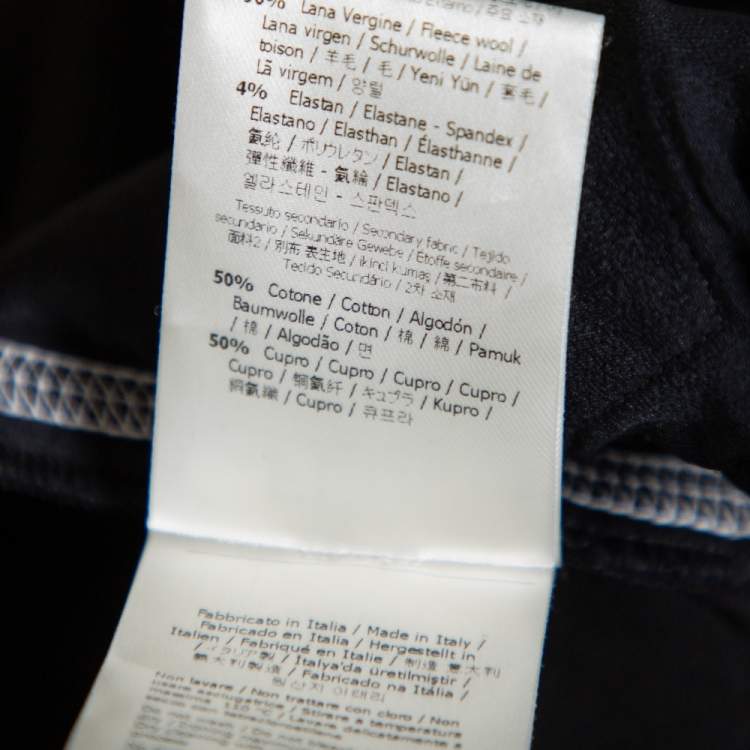 Lana Vergine / Fleece wool /
Lana virgen / Schurwolle / Laine de
toison / 羊毛 / 毛 / Yeni Yün / 套毛 /
Lã virgem / 양털
4% Elastan / Elastane - Spandex /
Elastano / Elasthan / Élasthanne /
氨纶 / ポリウレタン / Elastan /
彈性纖維 - 氨綸 / Elastano /
엘라스테인 - 스판덱스
Tessuto secondario / Secondary fabric / Tejido
secundario / Sekundäre Gewebe / Etoffe secondaire /
面料2 / 別布 表生地 / ikinci kumaş / 第二布料 /
Tecido Secundário / 2차 소재
50% Cotone / Cotton / Algodón /
Baumwolle / Coton / 棉 / 綿 / Pamuk
/ 棉 / Algodão / 면
50% Cupro / Cupro / Cupro / Cupro /
Cupro / 铜氨纤 / キュプラ / Kupro /
銅氨纖 / Cupro / 큐프라
Fabbricato in Italia / Made in Italy /
Fabricado en Italia / Hergestellt in
Italien / Fabriqué en Italie / 制造 意大利
/ イタリア製 / Italya'da üretilmiştir /
義大利製造 / Fabricado na Itália /
원산지 이태리
Non lavare / Non trattare con cloro / Non
usare asciugatrice / Stirare a temperatura
massima 110 °C / Lavare delicatamente